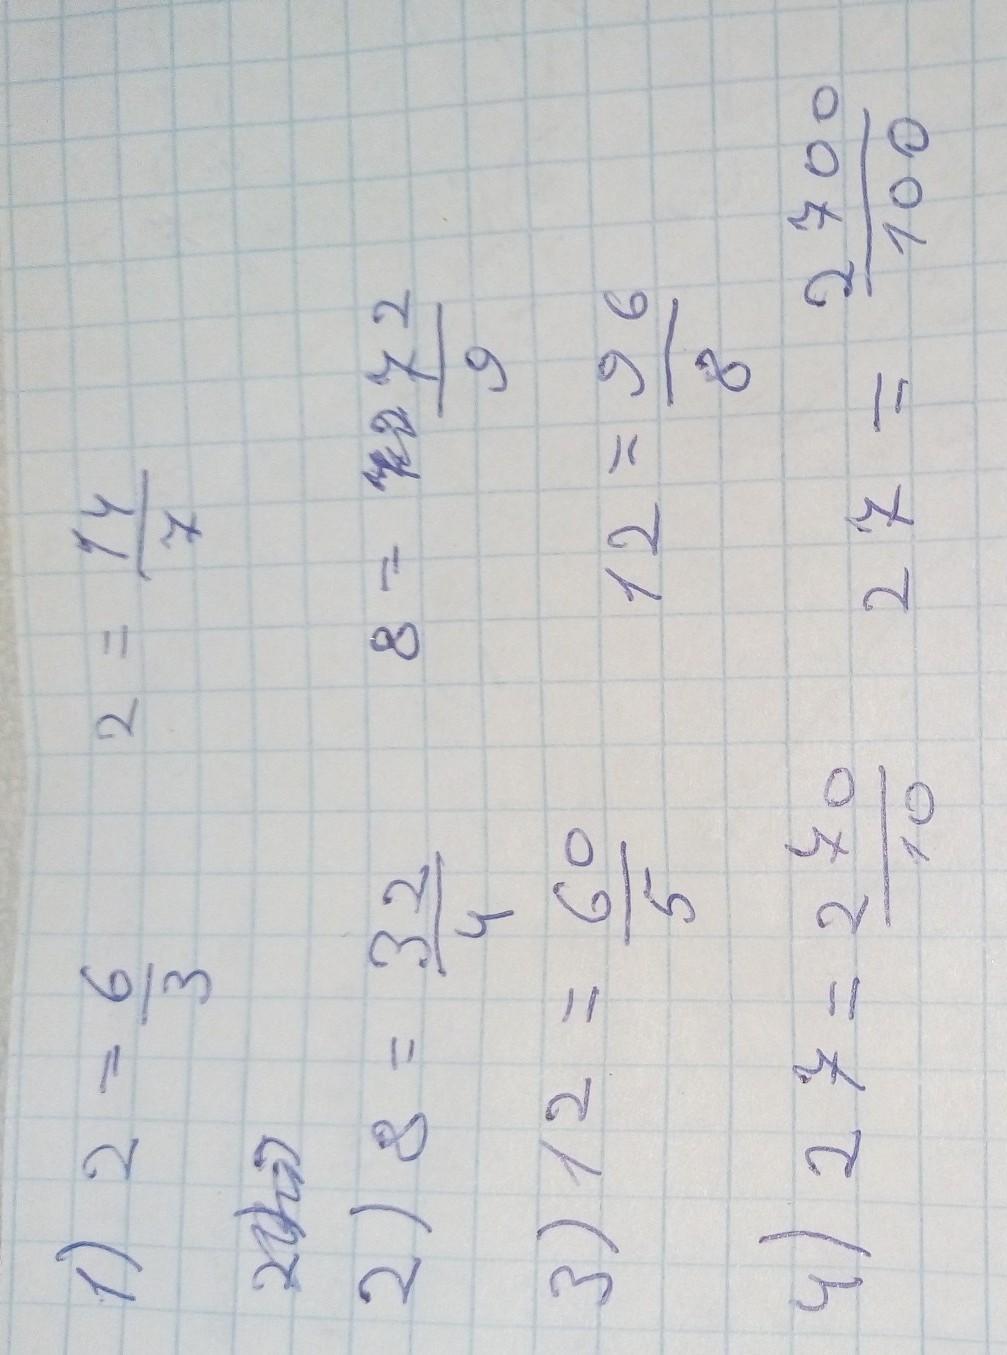 1) 2 = 6/3 2 = 14/7
2) 8 = 32/4 8 = 72/9
3) 12 = 60/5 12 = 96/8
4) 27 = 270/10 27 = 2700/100